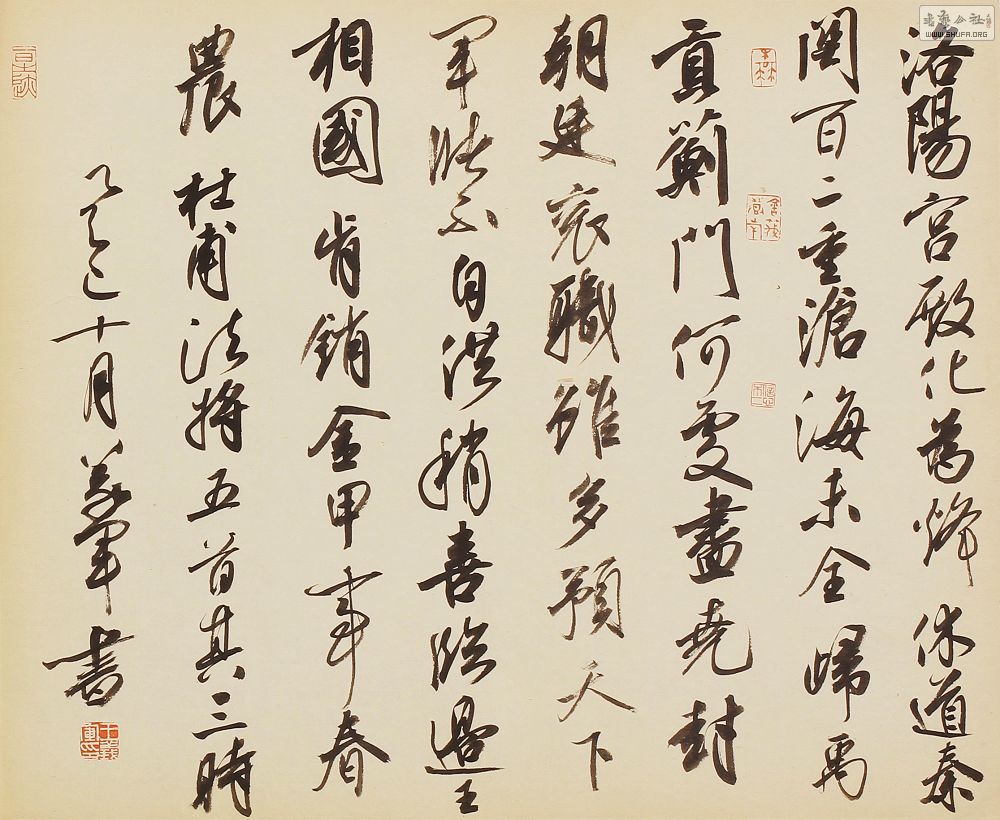 洛陽宮殿化為烽休道秦
關百二重滄海未全歸禹
貢薊門何處盡堯封
朝廷袞職雖多預天下
軍儲不自供稍喜臨邊王
相國肯銷金甲事春
農 杜甫諸將五首其三時
乙巳十月義軍書
王義軍印
书法公社
WWW.SHUFA.ORG